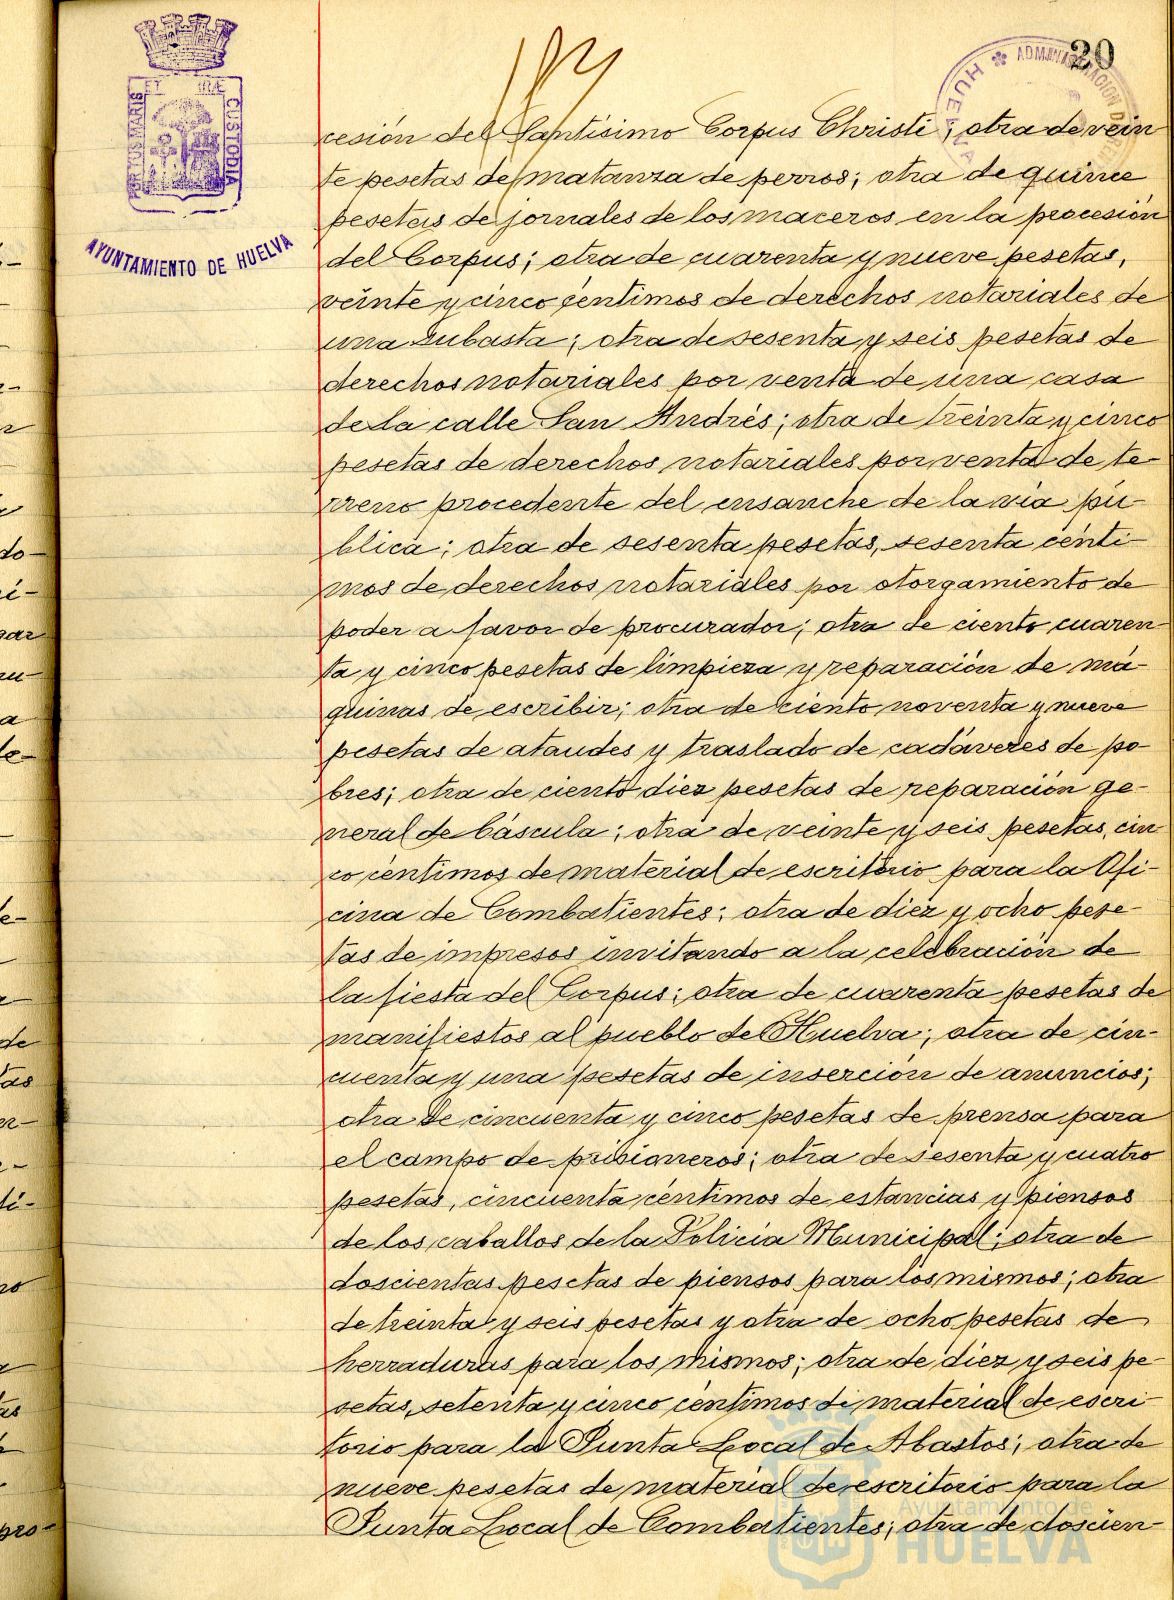 20
PORTUS MARIS ET TERRÆ CUSTODIA
AYUNTAMIENTO DE HUELVA
ADMINISTRACION DE
HUELVA
cesión del Santísimo Corpus Christi; otra de vein
te pesetas de matanza de perros; otra de quince
pesetas de jornales de los maceros en la procesión
del Corpus; otra de cuarenta y nueve pesetas,
veinte y cinco céntimos de derechos notariales de
una subasta; otra de sesenta y seis pesetas de
derechos notariales por venta de una casa
de la calle San Andrés; otra de treinta y cinco
pesetas de derechos notariales por venta de te-
rreno procedente del ensanche de la vía pú-
blica; otra de sesenta pesetas, sesenta cénti-
mos de derechos notariales por otorgamiento de
poder a favor de procurador; otra de ciento cuaren-
ta y cinco pesetas de limpieza y reparación de má-
quinas de escribir; otra de ciento noventa y nueve
pesetas de ataudes y traslado de cadáveres de po-
bres; otra de ciento diez pesetas de reparación ge-
neral de báscula; otra de veinte y seis pesetas, cin
co céntimos de material de escritorio para la Ofi-
cina de Combatientes; otra de diez y ocho pese-
tas de impresos invitando a la celebración de
la fiesta del Corpus; otra de cuarenta pesetas de
manifiestos al pueblo de Huelva; otra de cin-
cuenta y una pesetas de inserción de anuncios;
otra de cincuenta y cinco pesetas de prensa para
el campo de prisioneros; otra de sesenta y cuatro
pesetas, cincuenta céntimos de estancias y piensos
de los caballos de la Policía Municipal; otra de
doscientas pesetas de piensos para los mismos; otra
de treinta y seis pesetas y otra de ocho pesetas de
herraduras para los mismos; otra de diez y seis pe-
setas, setenta y cinco céntimos de material de escri-
torio para la Junta Local de Abastos; otra de
nueve pesetas de material de escritorio para la
Junta Local de Combatientes; otra de doscien-
Ayuntamiento de
HUELVA